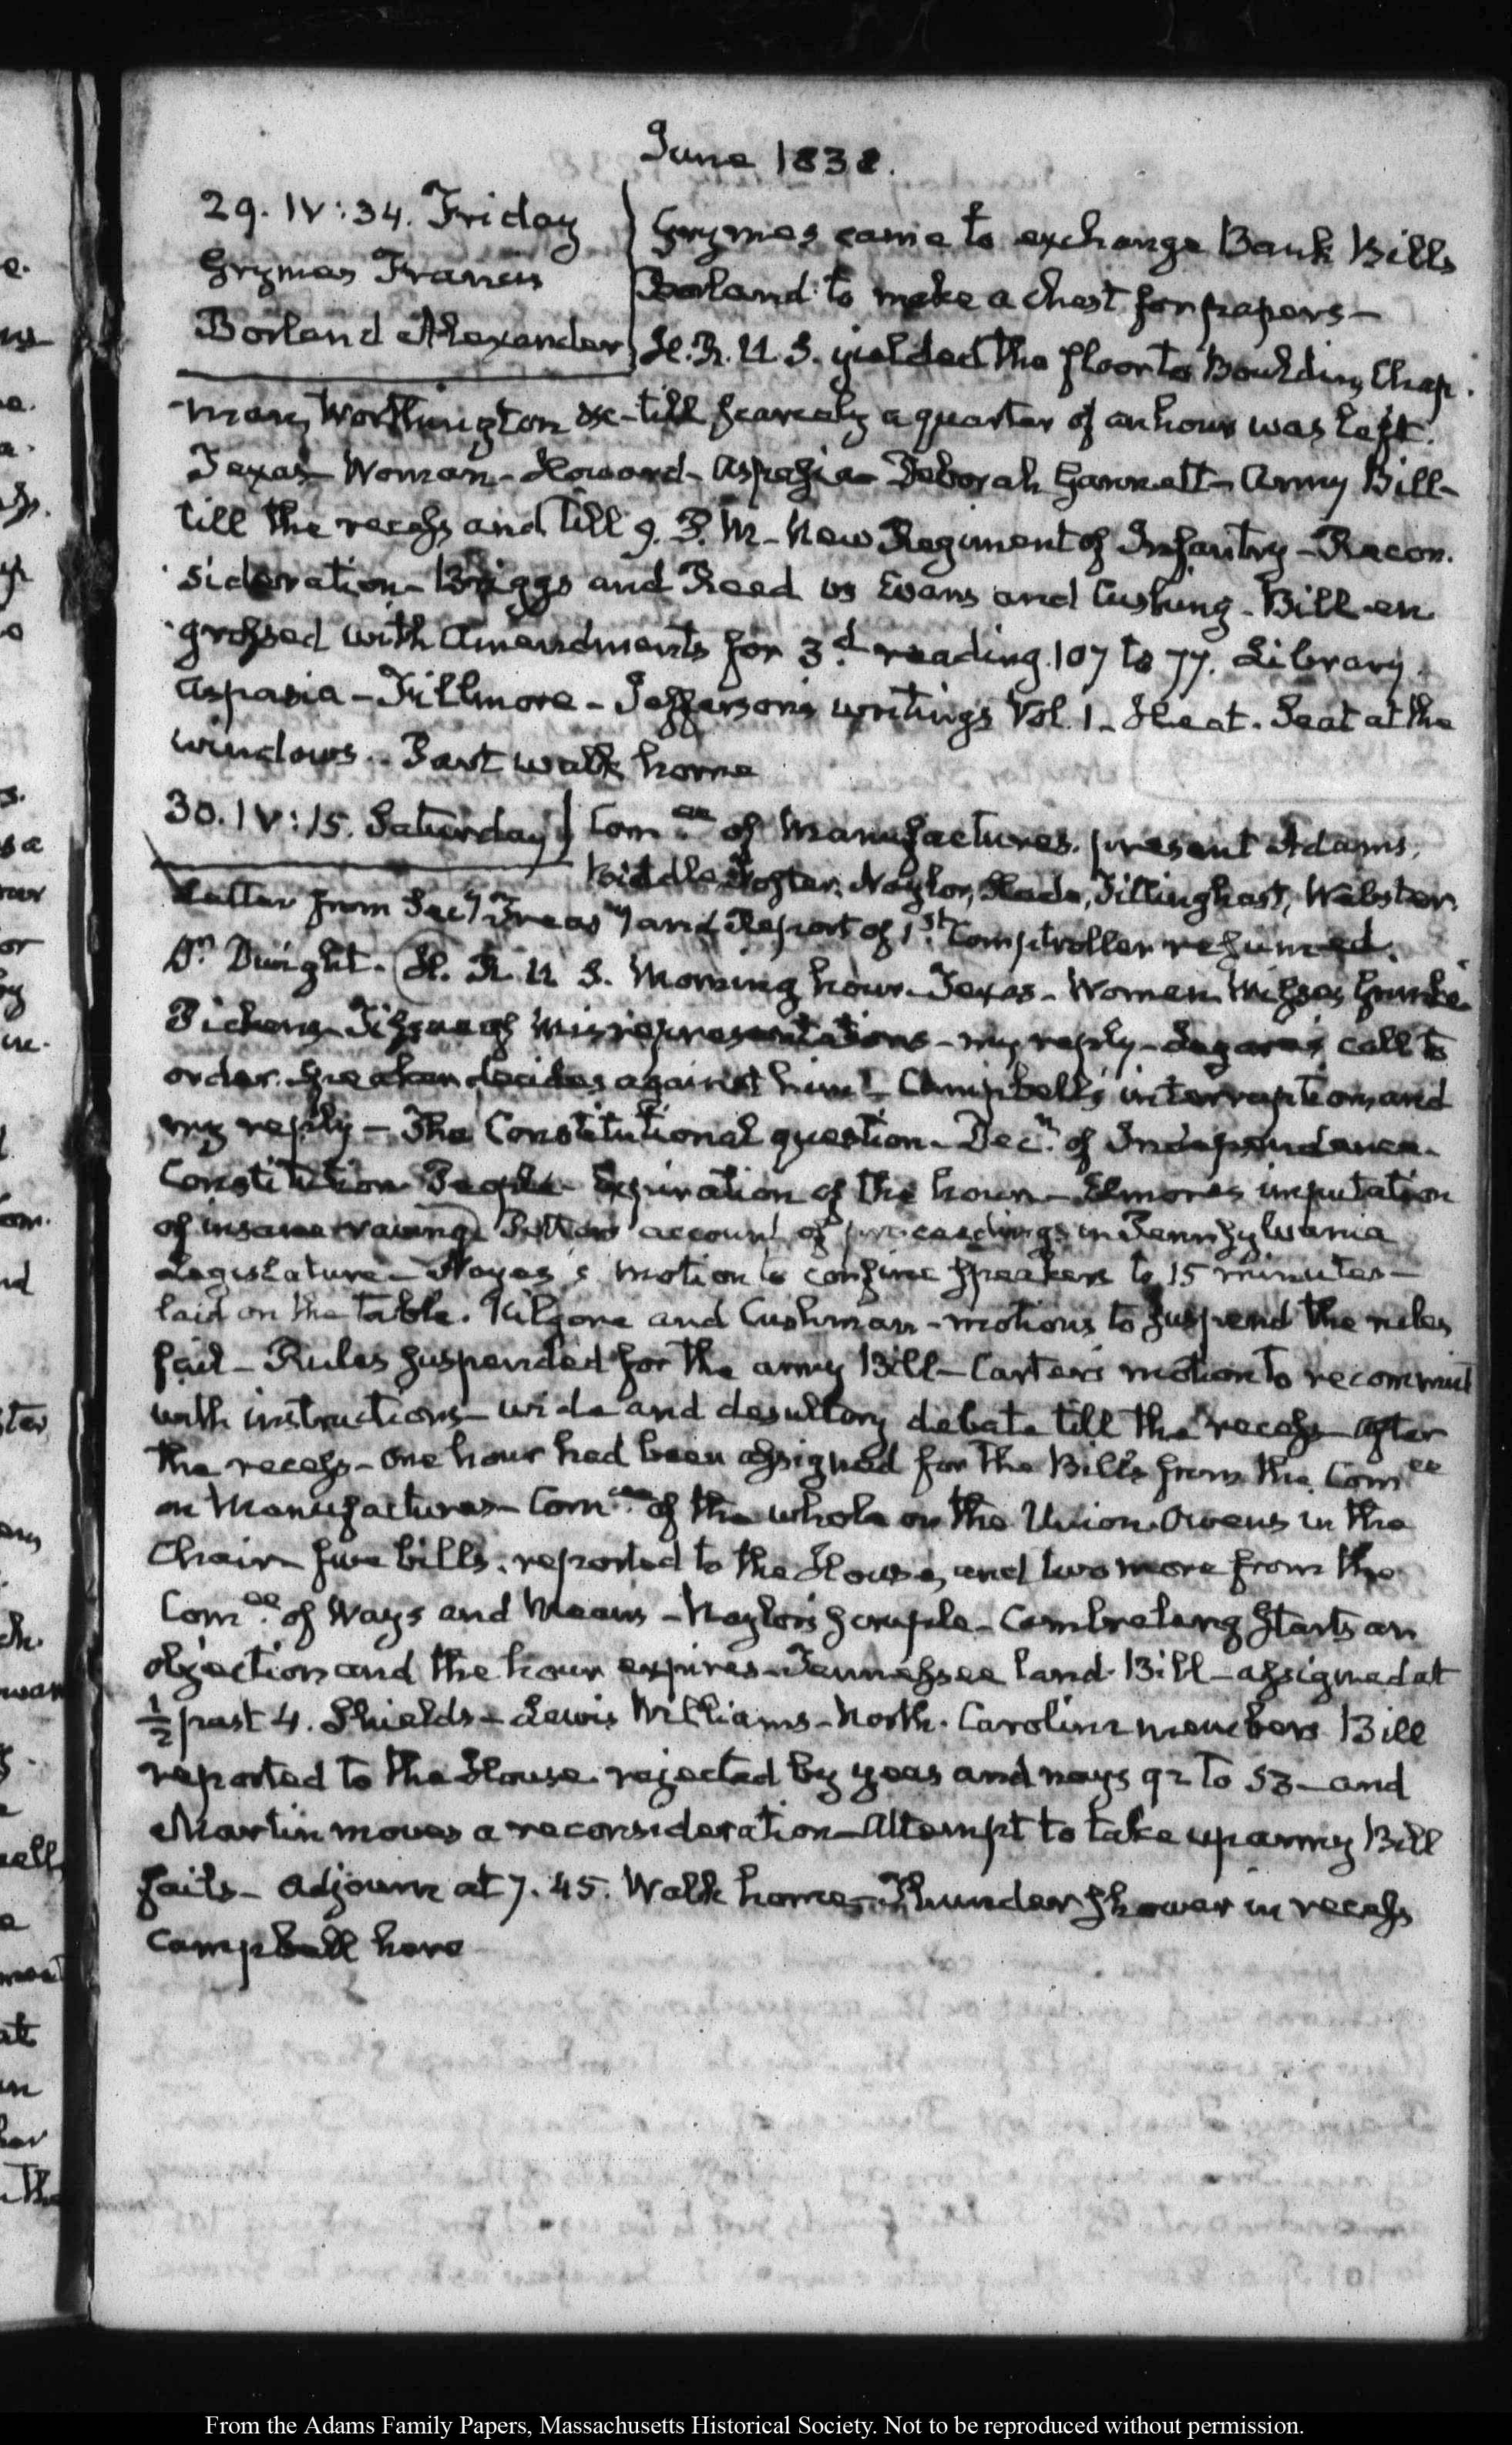 June 1838.
29. IV:34. Friday
Grymes Francis
Borland Alexander
Grymes came to exchange Bank Bills
Borland to make a chest for papers—
H.R.U.S. yielded the floor to Bouldin, Chap-
man, Worthington &c—till scarcely a quarter of an hour was left.
Texas—Woman—Howard—Aspasia—Deborah Gannett—Army Bill—
till the recess and till 9. P.M—New Regiment of Infantry—Recon-
sideration—Briggs and Reed vs Evans and Cushing—Bill en
grossed with Amendments for 3.d reading. 107 to 77. Library.
Aspasia—Fillmore—Jefferson's writings Vol. 1—Heat. Seat at the
windows—Part walk home
30. IV:15. Saturday
Com.ee of Manufactures. present Adams,
Biddle, Foster, Naylor, Slade, Tillinghast, Webster.
Letter from Sec.y Treas.y and Report of 1.st Comptroller resumed.
Dwight. H.R.U.S. Morning hour—Texas—Women Misses Grimke
Pickens—Tissue of misrepresentations—my reply—Legaré's call to
order. Speaker decides against him—Campbell's interruption and
my reply—The Constitutional question—Dec.n of Independence—
Constitution—People—Expiration of the hour—Elmore's imputation
of insane raving. Potter's account of proceedings in Pennsylvania
Legislature—Noyes's motion to confine speakers to 15 minutes—
laid on the table. Kilgore and Cushman—motions to suspend the rules
fail—Rules suspended for the army Bill—Carter's motion to recommit
with instructions—wide and desultory debate till the recess—After
the recess—one hour had been assigned for the Bills from the Com.ee
on Manufactures—Com.ee of the whole on the Union. Owens in the
Chair—five bills. reported to the House, and two more from the
Com.ee of Ways and Means—Naylor's scruple—Cambreleng starts an
objection and the hour expires—Tennessee land Bill—assigned at
½ past 4. Shields—Lewis Williams—North. Carolina members Bill
reported to the House. rejected by yeas and nays 92 to 53—and
Martin moves a reconsideration—Attempt to take up army Bill
fails—Adjourn at 7.45. Walk home—Thunder shower in recess
Campbell here
From the Adams Family Papers, Massachusetts Historical Society. Not to be reproduced without permission.